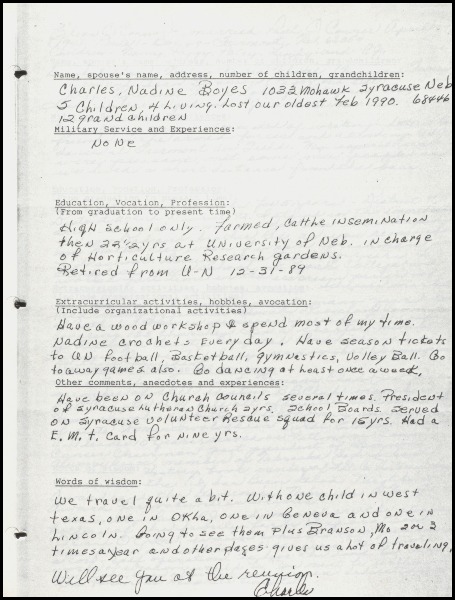 Name, spouse's name, address, number of children, grandchildren:
Charles, Nadine Boyes 1032 Mohawk Syracuse Neb
5 Children, 4 Living. Lost our oldest Feb 1990. 68446
12 grand children
Military Service and Experiences:
None
Education, Vocation, Profession:
(From graduation to present time)
High school only. Farmed, Catthe insemination
then 22½ yrs at University of Neb. in charge
of Horticulture Research gardens.
Retired from U-N 12-31-89
Extracurricular activities, hobbies, avocation:
(Include organizational activities)
Have a wood workshop & spend most of my time.
Nadine crochets every day. Have season tickets
to UN Football, Basketball, Gymnestics, Volley Ball. Go
to away games also. Go dancing at least once a week,
Other comments, anecdotes and experiences:
Have been on Church councils several times. President
of Syracuse Lutheran Church 2yrs. School Boards. Served
on Syracuse Volunteer Rescue squad for 15 yrs. Had a
E.M.t. Card for nine yrs.
Words of wisdom:
We travel quite a bit. With one child in west
texas, one in Okha, one in Geneva and one in
Lincoln. Going to see them plus Branson, Mo 2 or 3
times a year and other plages gives us a lot of traveling,
Will see you at the reunion.
Charles